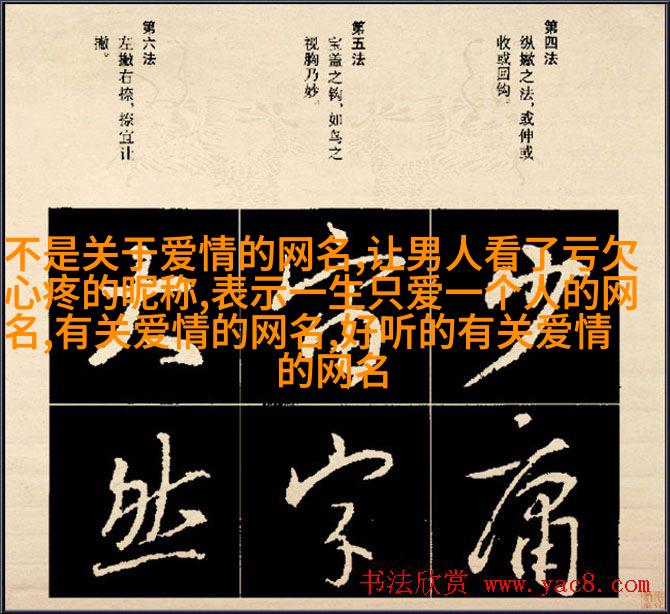 第四法
纵撇之法，或伸或
收或回钩。
第五法
宝盖之钩，如鸟之
视胸乃妙。
第六法
左撇右捺，捺宜让
撇。
不是关于爱情的网名,让男人看了亏欠
心疼的昵称,表示一生只爱一个人的网
名,有关爱情的网名,好听的有关爱情
的网名
少
庸
宇
然
书法欣赏 www.yac8.com